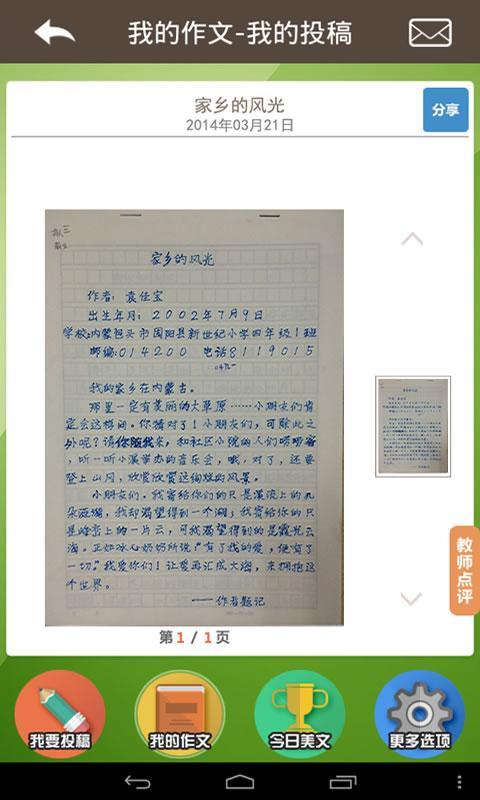 我的作文-我的投稿
家乡的风光
2014年03月21日
分享
家乡的风光
作者: 袁任宝
出生年月: 2002年7月9日
学校:内蒙包头市固阳县新世纪小学四年级1班
邮编:014200 电话8119015
我的家乡在内蒙古。
那里一定有美丽的大草原……小朋友们肯
定会这样问。你猜对了!小朋友们,可除此之
外呢?请你跟我来,和社区小院的人们唠唠嗑
,听一听小溪举办的音乐会,哦,对了,还要
登上山冈,欣赏欣赏这绚烂的风景。
小朋友们。我寄给你们的只是溪流上的几
朵涟漪,我却渴望得到一个湖;我寄给你的只
是峰峦上的一片云,可我渴望得到的是霞光云
海。正如冰心奶奶所说"有了我的爱,便有了
一切"我爱你们!让爱再汇成大海,来拥抱这
个世界。
——作者题记
第1/1页
教师点评
我要投稿
我的作文
今日美文
更多选项